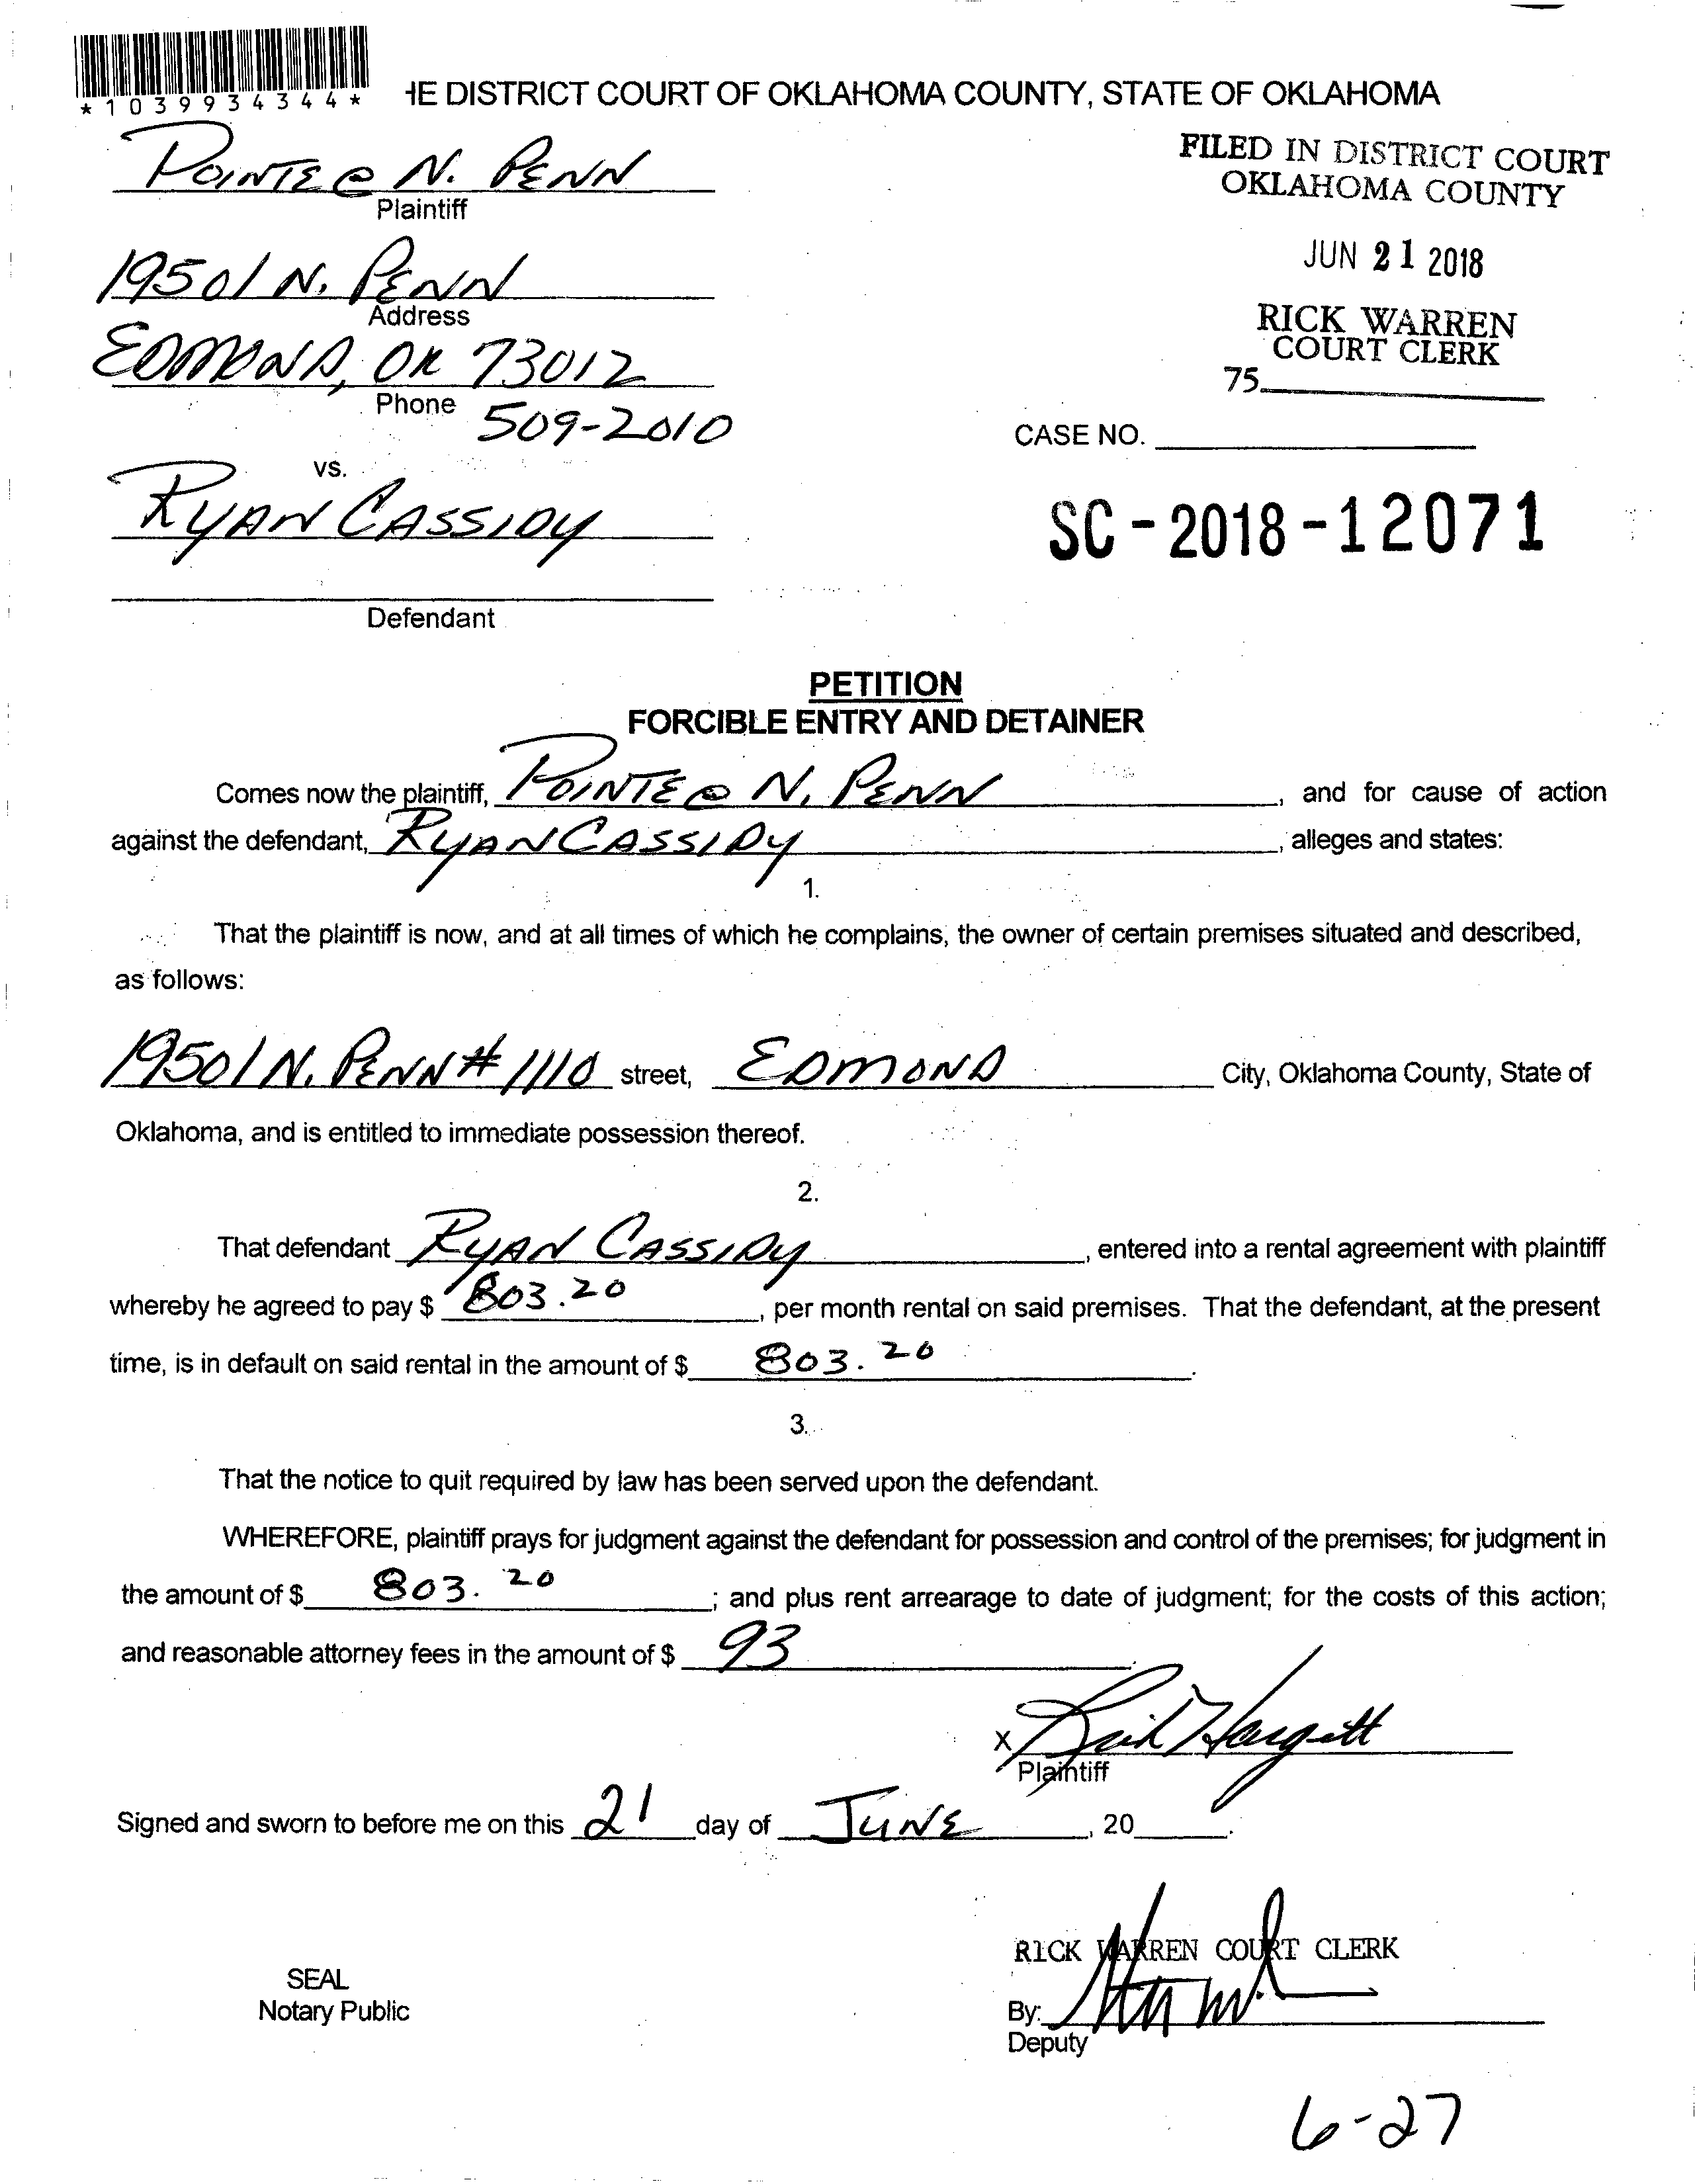 *1039934344*
HE DISTRICT COURT OF OKLAHOMA COUNTY, STATE OF OKLAHOMA
POINTE @ N. PENN
Plaintiff
FILED IN DISTRICT COURT
OKLAHOMA COUNTY
JUN 21 2018
RICK WARREN
COURT CLERK
75
19501 N. PENN
Address
EDMOND, OK 73012
Phone 509-2010
CASE NO.
SC-2018-12071
vs.
RYAN CASSIDY
Defendant
PETITION
FORCIBLE ENTRY AND DETAINER
Comes now the plaintiff, POINTE @ N. PENN, and for cause of action
against the defendant, RYAN CASSIDY, alleges and states:
1.
That the plaintiff is now, and at all times of which he complains, the owner of certain premises situated and described,
as follows:
19501 N. PENN # 1110 street, EDMOND City, Oklahoma County, State of
Oklahoma, and is entitled to immediate possession thereof.
2.
That defendant RYAN CASSIDY, entered into a rental agreement with plaintiff
whereby he agreed to pay $ 803.20, per month rental on said premises. That the defendant, at the present
time, is in default on said rental in the amount of $ 803.20.
3.
That the notice to quit required by law has been served upon the defendant.
WHEREFORE, plaintiff prays for judgment against the defendant for possession and control of the premises; for judgment in
the amount of $ 803.20; and plus rent arrearage to date of judgment; for the costs of this action;
and reasonable attorney fees in the amount of $ 93.
X Hargett
Plaintiff
Signed and sworn to before me on this 21 day of JUNE, 20 .
RICK WARREN COURT CLERK
SEAL
Notary Public
By:
Deputy
6-27